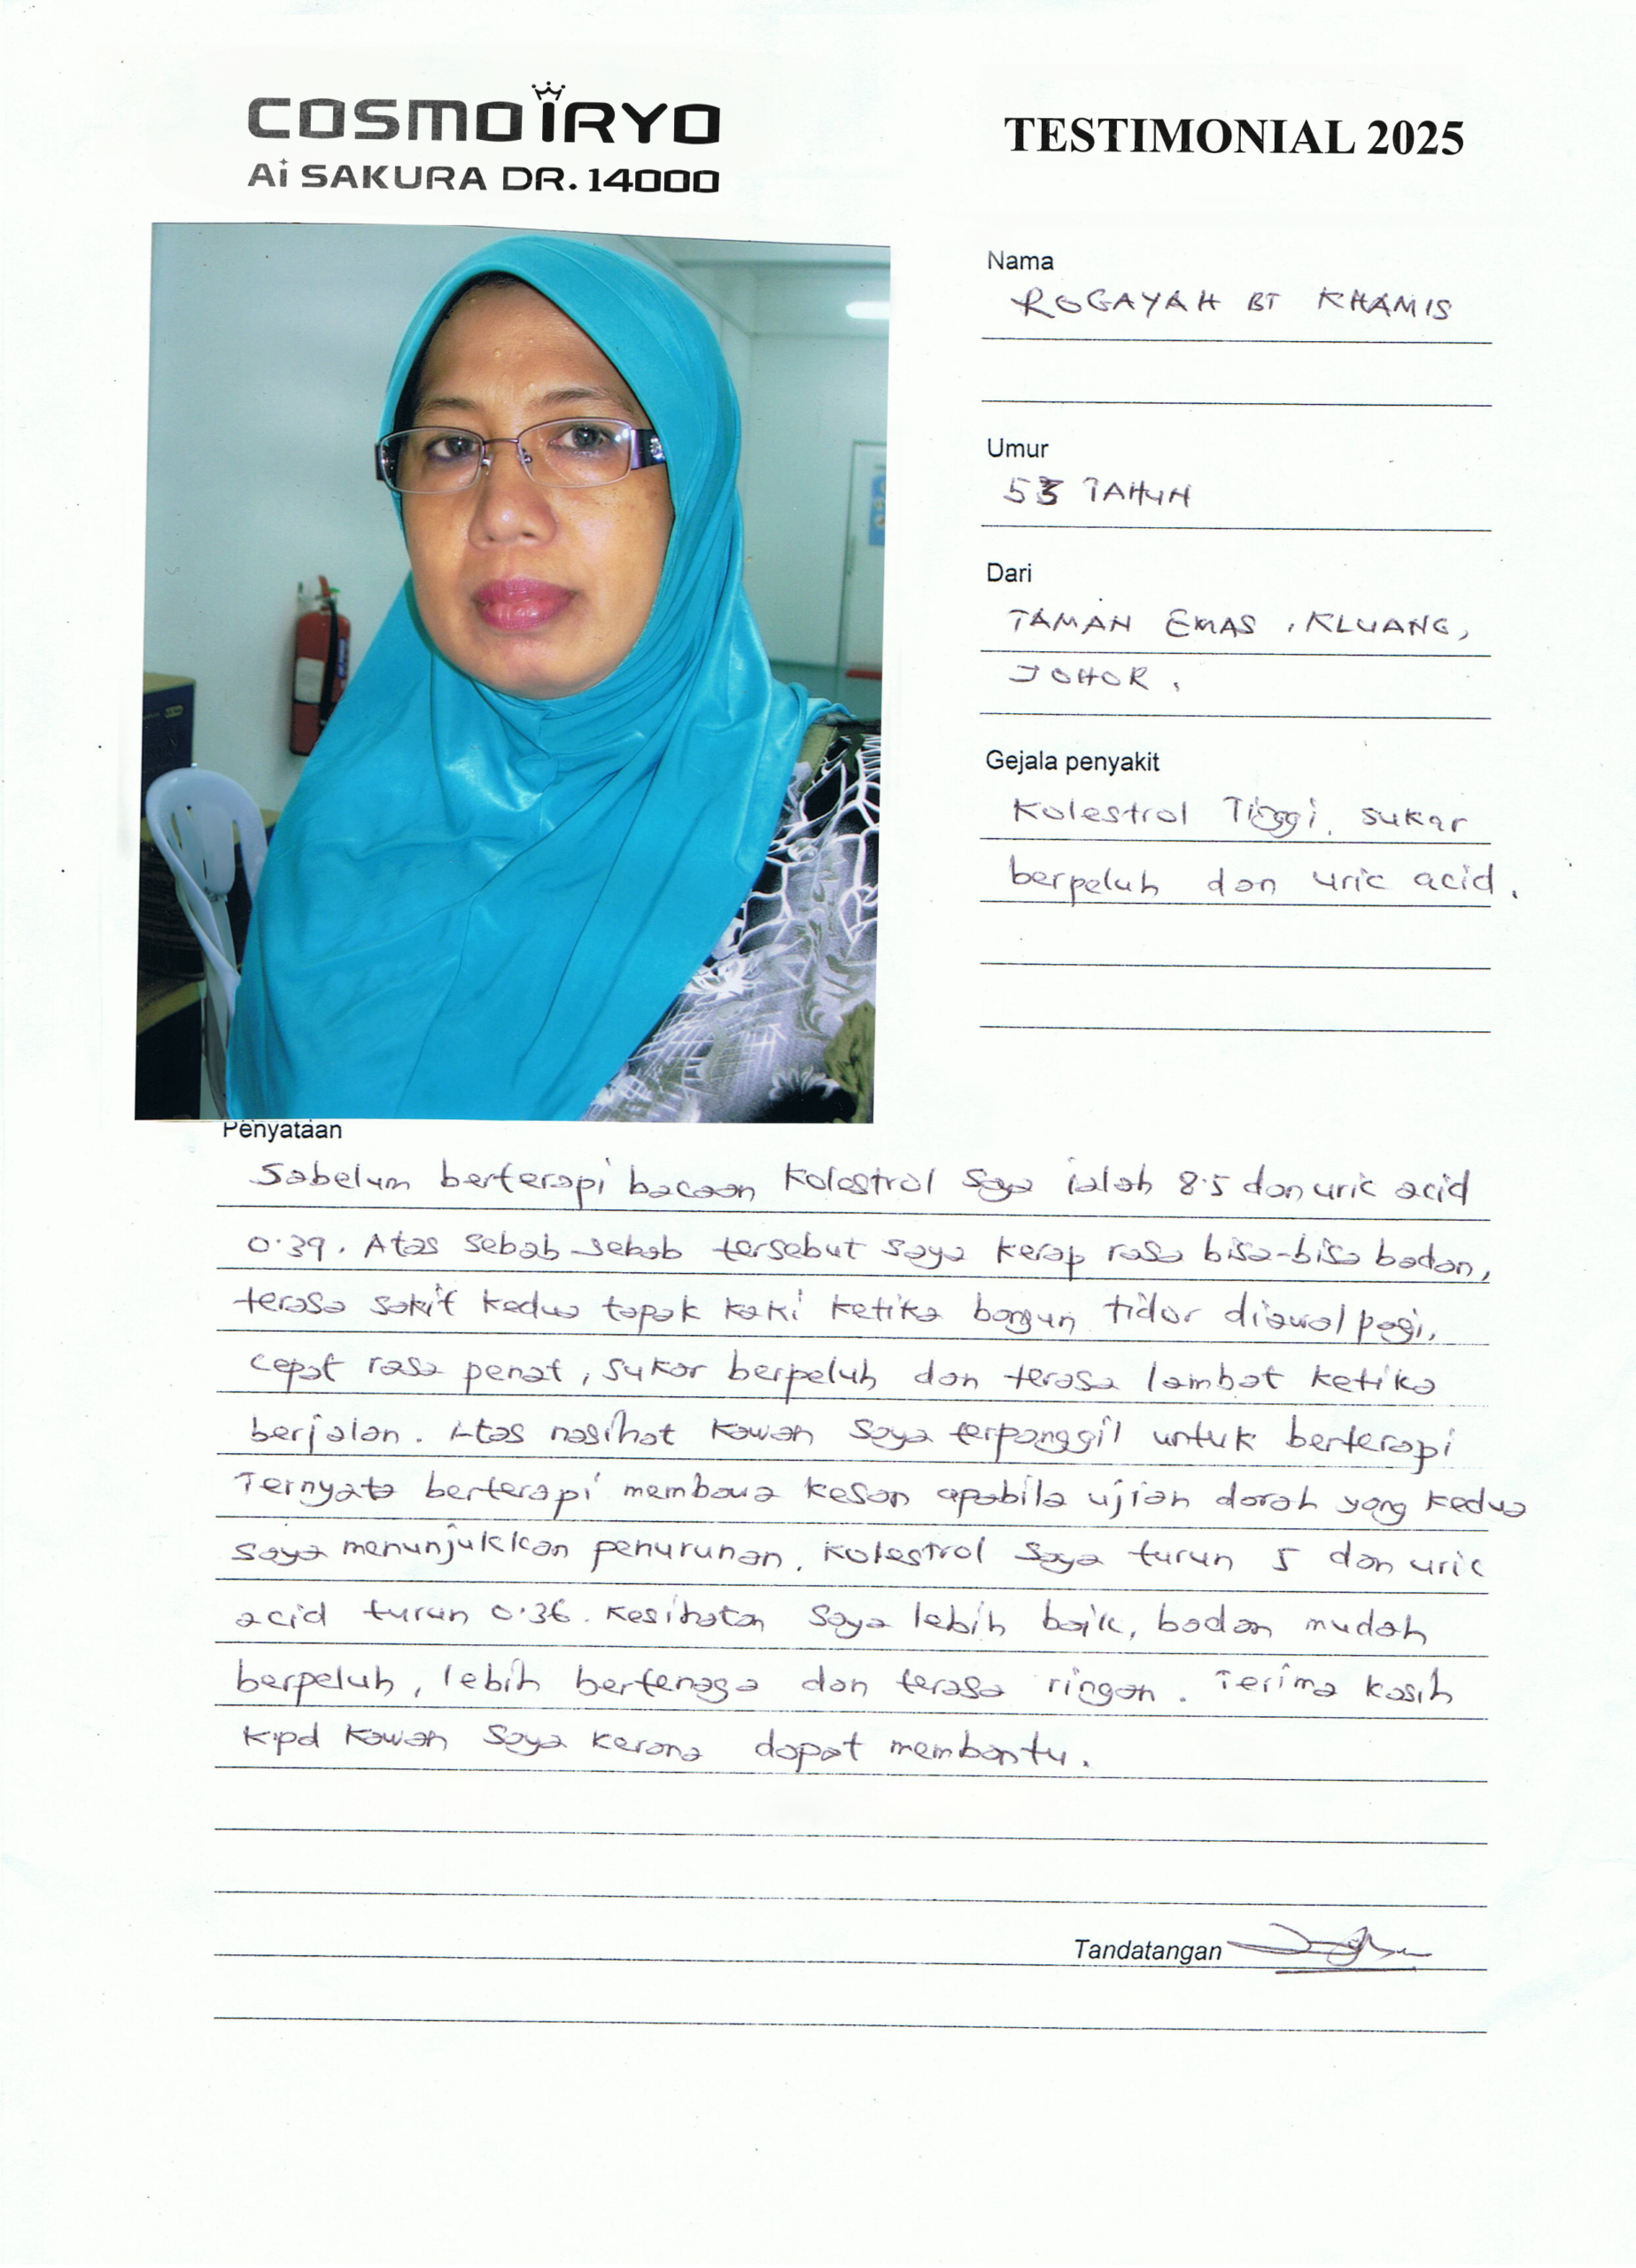 COSMO IRYO
Ai SAKURA DR. 14000
TESTIMONIAL 2025
Nama
ROGAYAH BT KHAMIS
Umur
53 TAHUN
Dari
TAMAN EMAS, KLUANG,
JOHOR.
Gejala penyakit
Kolestrol Tinggi, sukar
berpeluh dan uric acid.
Penyataan
Sabelum berterapi bacaan Kolestrol saya ialah 8.5 dan uric acid
0.39. Atas sebab-sebab tersebut saya kerap rasa bisa-bisa badan,
terasa sakit kedua tapak kaki ketika bangun tidur diawal pagi,
cepat rasa penat, sukar berpeluh dan terasa lambat ketika
berjalan. Atas nasihat kawan saya terpanggil untuk berterapi
Ternyata berterapi membawa kesan apabila ujian darah yang kedua
saya menunjukkan penurunan. Kolestrol saya turun 5 dan uric
acid turun 0.36. Kesihatan saya lebih baik, badan mudah
berpeluh, lebih bertenaga dan terasa ringan. Terima kasih
kpd kawan saya kerana dapat membantu.
Tandatangan